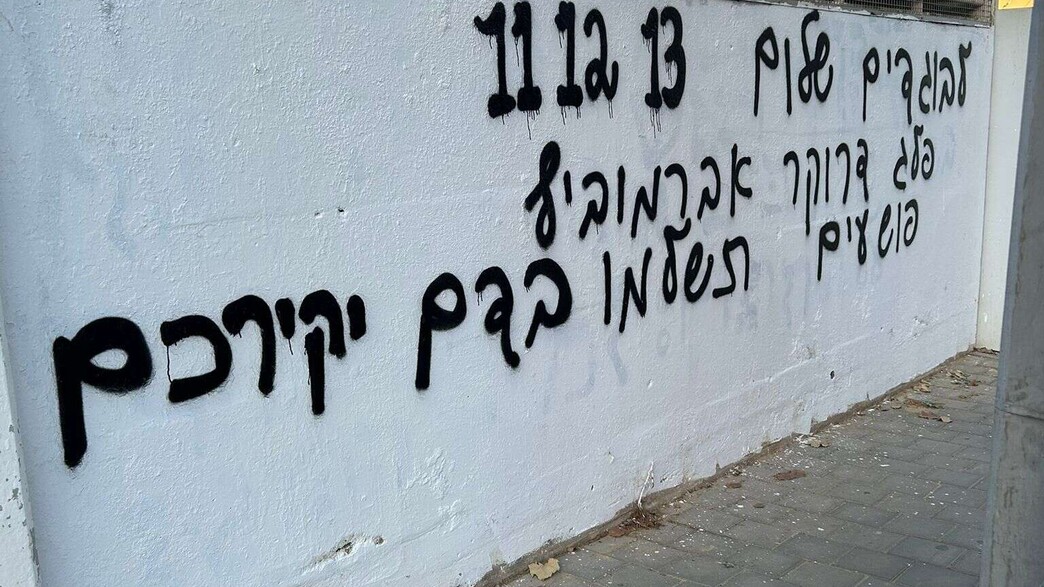 לבוגדים שלום 13 12 11
פלג דרוקר אברמוביץ
פושעים תשלמו בדם יקירכם